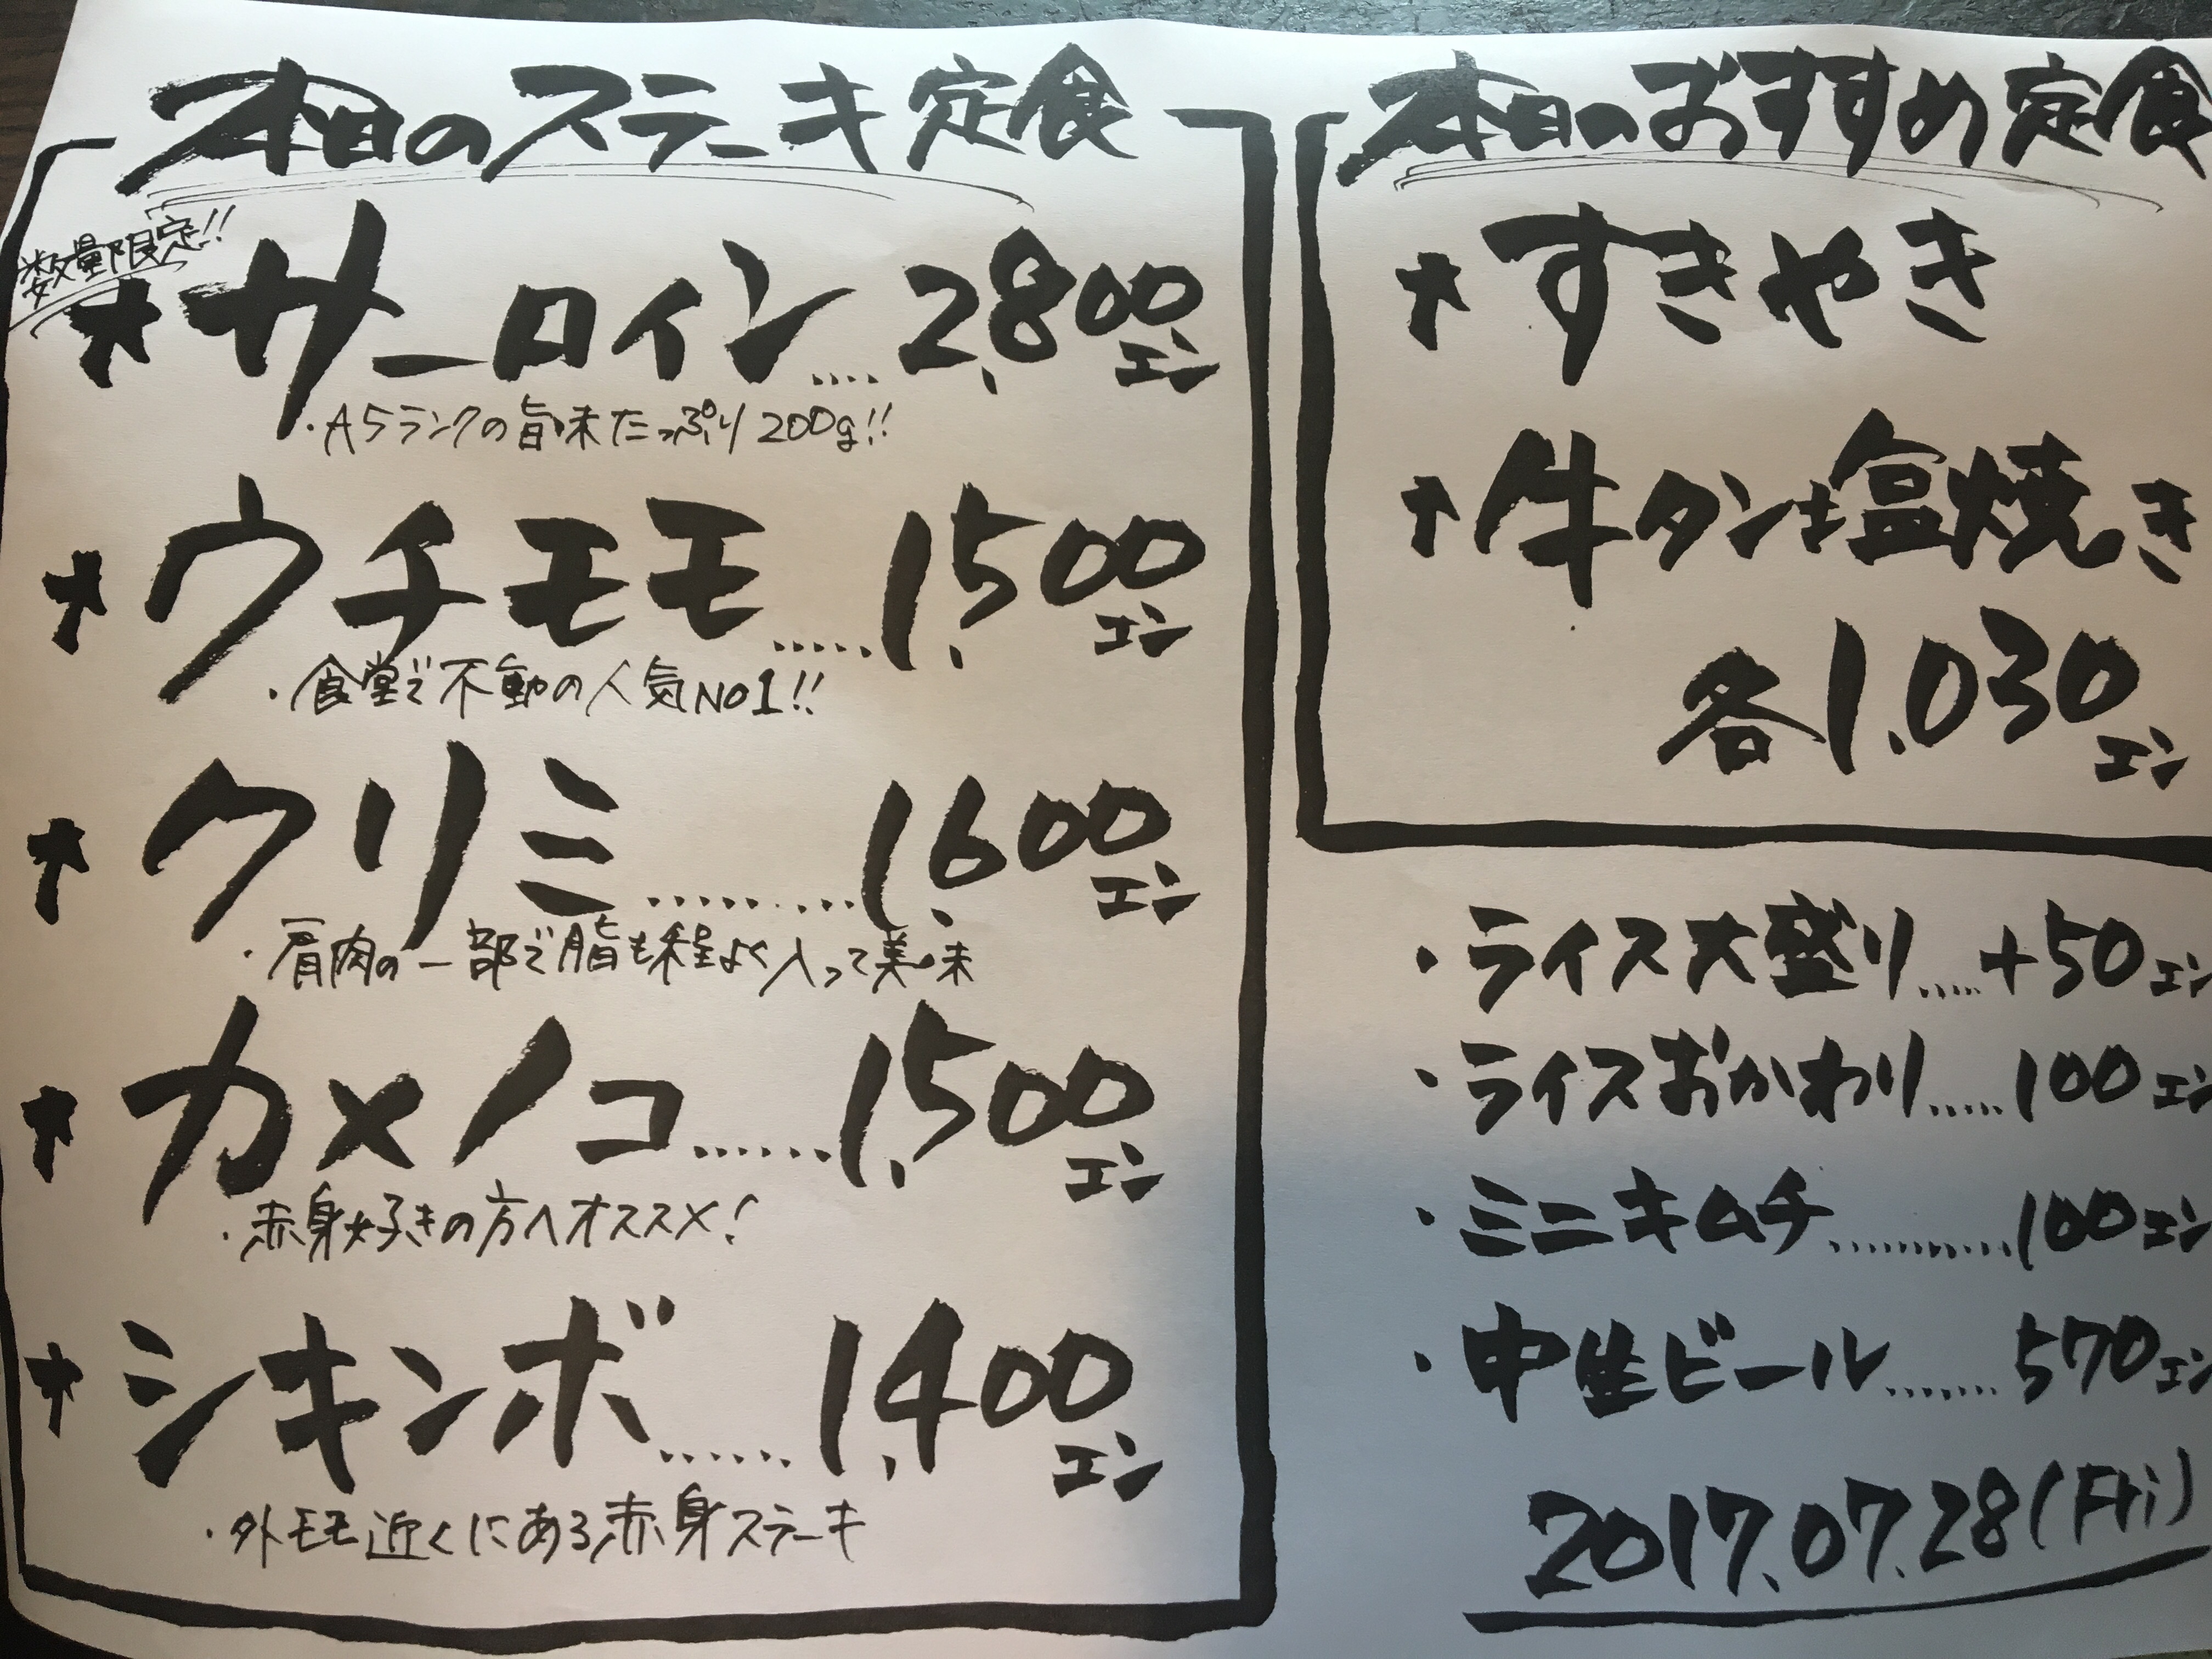 本日のステーキ定食
数量限定!!
★サーロイン....2,800エン
・A5ランクの旨味たっぷり200g!!
★ウチモモ.....1,500エン
・食堂で不動の人気NO1!!
★クリミ.........1,600エン
・肩肉の一部で脂も程よく入って美味
★カメノコ......1,500エン
・赤身好きの方へオススメ!
★シキンボ......1,400エン
・外モモ近くにある赤身ステーキ
本日のおすすめ定食
★すきやき
★牛タン塩焼き
各1,030エン
・ライス大盛り.....+50エン
・ライスおかわり.....100エン
・ミニキムチ...........100エン
・中生ビール.......570エン
2017.07.28(Fri)